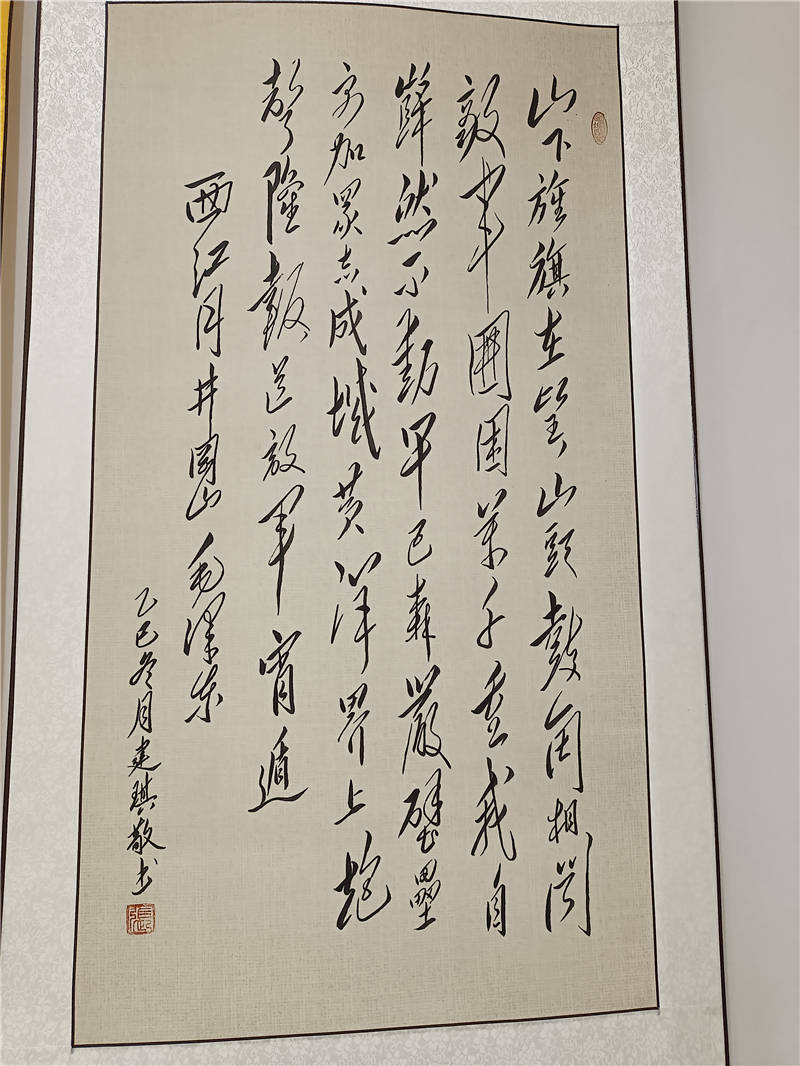 山下旌旗在望山頭鼓角相聞
敵軍圍困萬千重我自
巋然不動早已森嚴壁壘
更加眾志成城黃洋界上炮
聲隆報道敵軍宵遁
西江月井岡山毛澤東
乙巳冬月建琪敬书